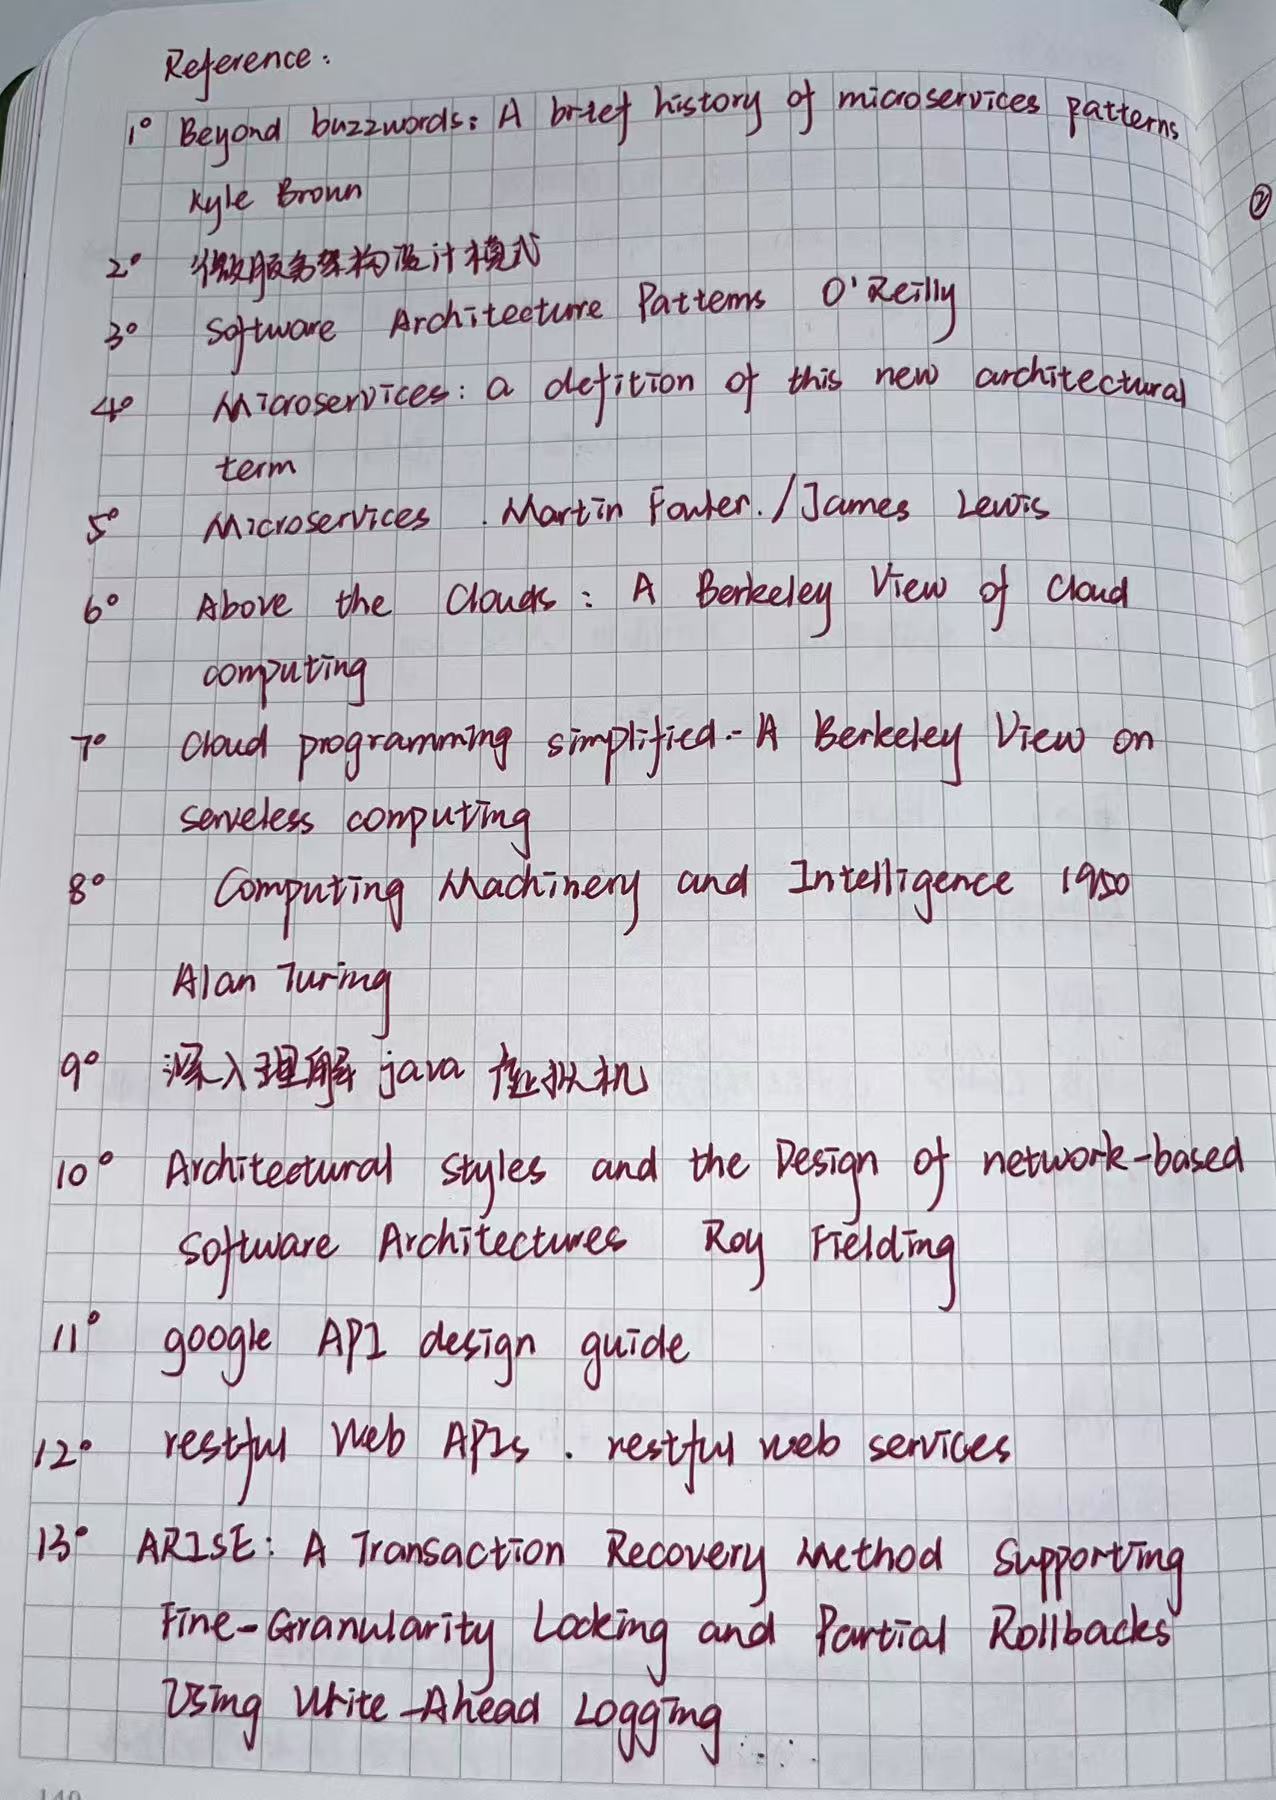 Reference:
1° Beyond buzzwords: A brief history of microservices patterns
Kyle Brown
②
2° 微服务架构设计模式
3° Software Architecture Patterns O'Reilly
4° Microservices: a defition of this new architectural
term
5° Microservices . Martin Fowler. / James Lewis
6° Above the Clouds: A Berkeley View of Cloud
computing
7° Cloud programming simplified - A Berkeley View on
serveless computing
8° Computing Machinery and Intelligence 1950
Alan Turing
9° 深入理解 java 虚拟机
10° Architectural Styles and the Design of network-based
Software Architectures Roy Fielding
11° google API design guide
12° restful Web APIs . restful web services
13° ARISE: A Transaction Recovery Method Supporting
Fine-Granularity Locking and Partial Rollbacks
Using Write-Ahead Logging